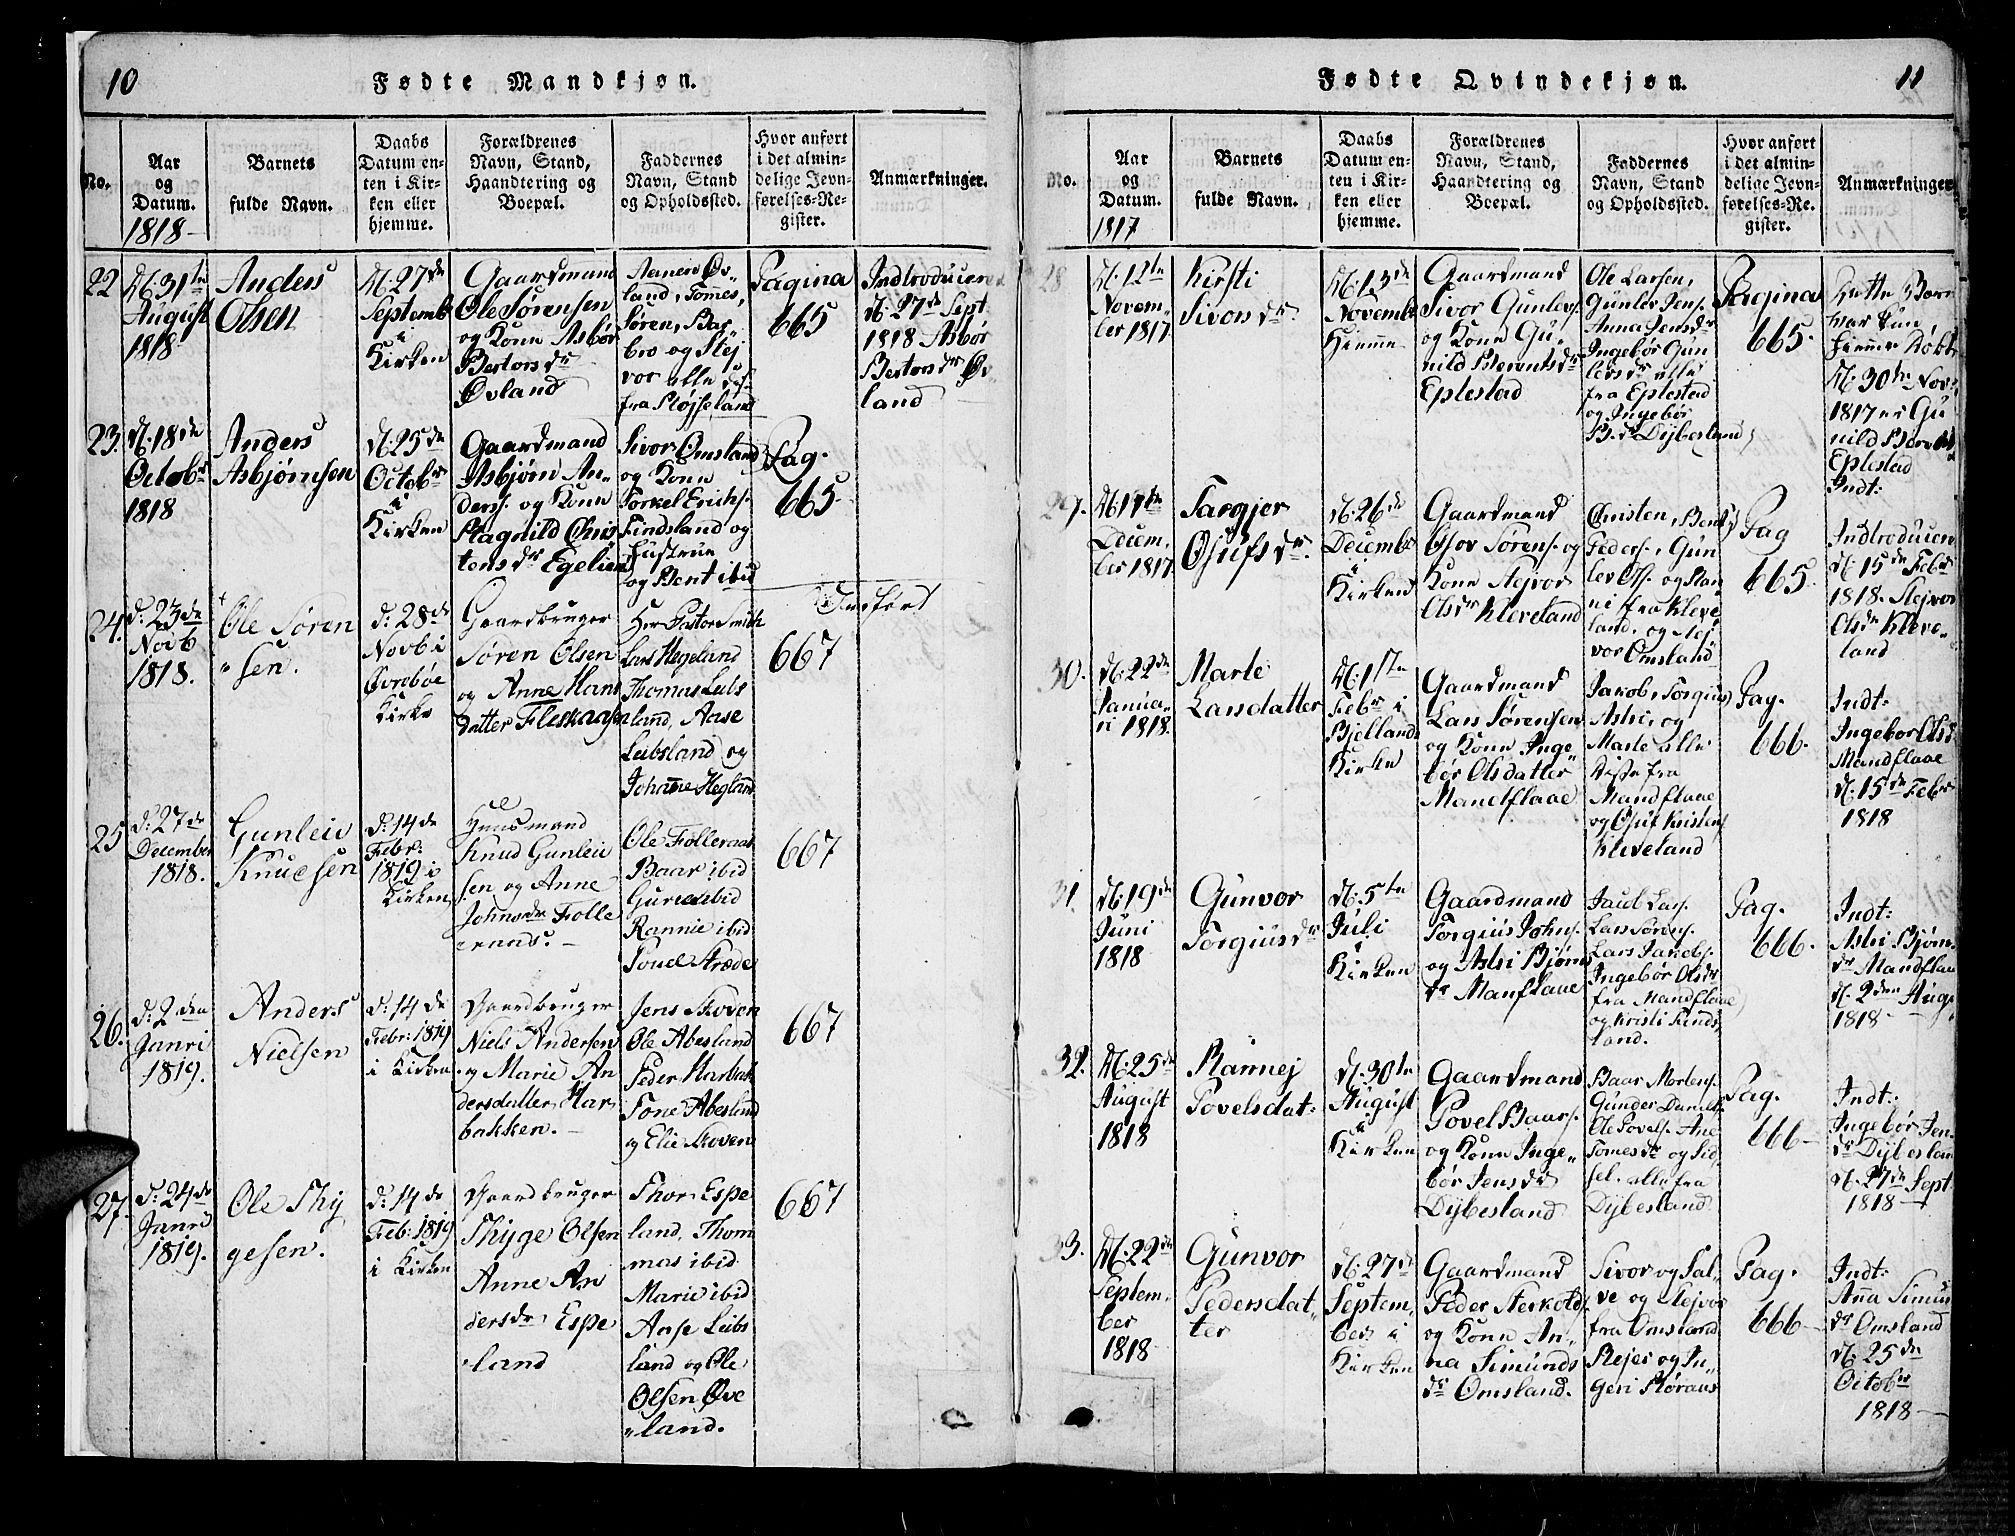 10
Fødte Mandkjøn.
No.
Aar
og
Datum.
1818
Barnets
fulde Navn.
Daabs
Datum en-
ten i Kir-
ken eller
hjemme.
Forældrenes
Navn, Stand,
Haandtering og
Boepæl.
Faddernes
Navn, Stand
og Opholdssted.
Hvor anført
i det almin-
delige Jevn-
førelses-Re-
gister.
Anmærkninger.
22
D: 31te
August
1818
Anders
Olsen
D: 27de
Septemb
i
Kirken
Gaardmand
Ole Sørensen
og Kone Asbør
Bertorsdr
Øvland
land, Tomes,
Søren, Bar
bro og Stej
vor alle
fra Støjseland
Pagina
665
Introducered
D: 27de Sept
1818 Asbør
Bertorsdr Øv
land
23.
D: 18de
Octobr
1818
Anders
Asbjørnsen
D: 25de
Octobr
i
Kirken
Gaardmand
Asbjørn An-
ders. og Kone
Ragnild Chris
tensdr Egelien
Sivor Omsland
og Kone
Torkel Erichs.
Findsland og
Hustrue
og Bent ibid
Pag.
665
24.
d: 23de
Novb
1818.
Ole Søren
"sen.
d: 28de
Novb i
Øvrebøe
Kirke
Gaardbruger
Søren Olsen
og Anne Hans
datter Fleskaasen
Herr Pastor Smith
Lars Hegeland
Thomas Lubs
land, Aase
Leibsland og
Johanne Hegland
667
25
d: 27de
December
1818.
Gunleiv
Knudsen
d: 14de
Febr:
1819 i
Kirken
Huusmand
Knud Gunlei
sen og Anne
Johnsdr Folle
raas. –
Ole Folleraas
Baar ibid
Guri ibid
Rannie ibid
Tone Træde
667
26.
d: 2den
Janri
1819.
Anders
Nielsen
d: 14de
Febr: 1819
i Kirken
Gaardbruger
Niels Andersen
og Marie An
dersdatter Har
bakken. –
Jens Skoven
Ole Abesland
Peder Harbak
Tone Abesland
og Elie Skoven
667
27.
d: 24de
Janri
1819.
Ole Thy
gesen.
d: 14de
Feb: 1819
i Kirken
Gaardbruger
Thyge Olsen
Anne An
dersdr Espe
land
Thor Espe
land, Thom
mas ibid
Marie ibid
Anse Leibs
land og Ole
Olsen Øve
"land.
667
11
Fødte Qvindekjøn.
No.
Aar
og
Datum.
1817
Barnets
fulde Navn.
Daabs
Datum en-
ten i Kir-
ken eller
hjemme.
Forældrenes
Navn, Stand,
Haandtering og
Boepæl.
Faddernes
Navn, Stand
og Opholdssted.
Hvor anført
i det almin-
delige Jevn-
førelses-Re-
gister.
Anmærkninger
28
D: 12te
Novem-
ber 1817
Kirsti
Sivorsdr
D: 13de
Novembr
Hiemme
Gaardmand
Sivor Gunlevs.
og Kone Gu-
nild Berentsdr
Eplestad
Ole Larsen,
Gunlev Jens.
Anna Jensdr
Ingebør Gun
levsdr alle
fra Eplestad
og Ingebør
B.dr Dybesland
Pagina
665.
Dette Barn
var kun
hiemme døbt
D: 30te Nov.
1817 er Gu
nild Berentsdr
Eplestad
Indt:
29.
D: 17de
Decem-
ber 1817
Targjer
Osufsdr
D: 26de
Decembr
i
Kirken
Gaardmand
Osov Sørens. og
Kone Stejvor
Olsdr Kleveland
Christen, Bent
Peders, Gun
lev Ols. og Ran
ni fra Kleve
land, og Stej
vor Omsland
Pag
665.
Introducered
D: 15de Febr
1818. Stejvor
Olsdr Kleve-
land
30.
D: 22de
Janua-
ri 1818.
Marte
Larsdatter
D: 1ste
Febr i
Bjellands
Kirke
Gaardmand
Lars Sørensen
og Kone Inge
bør Olsdatter
Mandflaae
Jakob, Torgius
Aslvi, og
Marte alle
disse fra
Mandflaae
og Osuf Kristens
Kleveland
Pag.
666.
Indt:
Ingebor Olsd
Mandflaae
D: 15de Febr
1818
31.
D: 19de
Juni
1818
Gunvor
Torgiusdr
D: 5te
Juli
i
Kirken
Gaardmand
Torgius Johns.
og Aslvi Bjørns
dr Manflaae
Paul Las.
Lars Sørens.
Lars Jakobs.
Ingebør Olsdr
fra Mandflaae
og Kristi Finds
land.
Pag.
666.
Indt:
Aslvi Bjørns
dr Mandflaa
D: 2den Aug
1818
32.
D: 25de
August
1818
Rannej
Povelsdat:
D: 30te
August
i
Kirken
Gaardmand
Povel Baars.
og Kone Inge-
bør Jensdr
Dybesland
Baar Mortens.
Gunder Daniels
Ole Povels. Ane
Tomesdr og Sid
sel. alle fra
Dybesland
Pag.
666
Indt:
Ingebør Jen-
dr Dybesland
D: 27de Sept
1818
33.
D: 22de
Septem-
ber
1818
Gunvor
Pedersdat-
ter
D: 27de
Septem-
ber i
Kirken
Gaardmand
Peder Sterkolds.
og Kone An-
na Simunds
dr Omsland.
Sivor og Sal-
ve og Stejvor
fra Omsland
Rejer og In-
geri Røraas
Pag.
666
Indt:
Anna Simun
dr Omsland
D: 25de
Octobr
1818